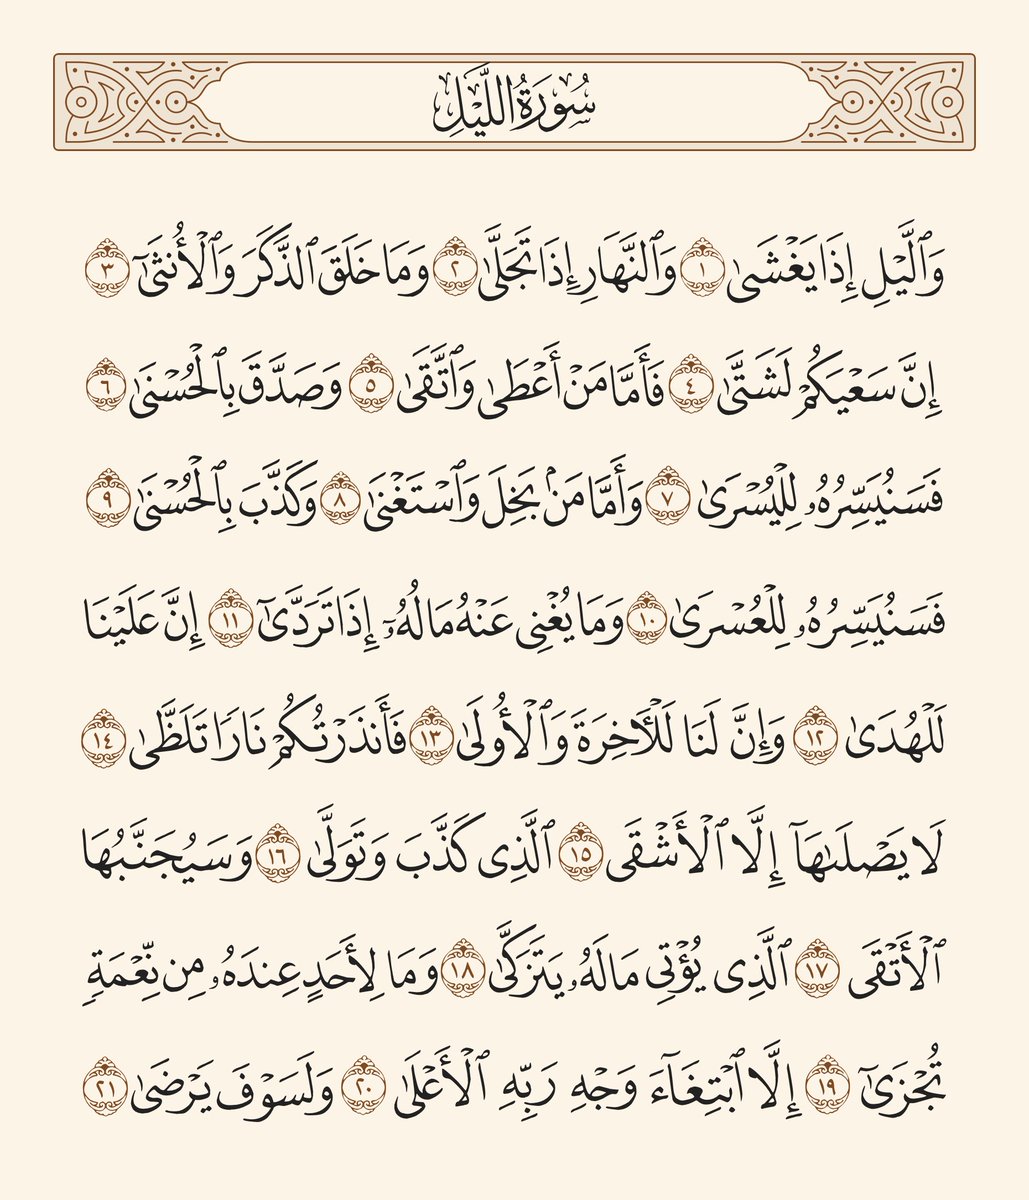 سُورَةُ اللَّيْلِ
وَٱلَّيْلِ إِذَا يَغْشَىٰ ١ وَٱلنَّهَارِ إِذَا تَجَلَّىٰ ٢ وَمَا خَلَقَ ٱلذَّكَرَ وَٱلْأُنثَىٰٓ ٣
إِنَّ سَعْيَكُمْ لَشَتَّىٰ ٤ فَأَمَّا مَنْ أَعْطَىٰ وَٱتَّقَىٰ ٥ وَصَدَّقَ بِٱلْحُسْنَىٰ ٦
فَسَنُيَسِّرُهُۥ لِلْيُسْرَىٰ ٧ وَأَمَّا مَنۢ بَخِلَ وَٱسْتَغْنَىٰ ٨ وَكَذَّبَ بِٱلْحُسْنَىٰ ٩
فَسَنُيَسِّرُهُۥ لِلْعُسْرَىٰ ١٠ وَمَا يُغْنِى عَنْهُ مَالُهُۥٓ إِذَا تَرَدَّىٰٓ ١١ إِنَّ عَلَيْنَا
لَلْهُدَىٰ ١٢ وَإِنَّ لَنَا لَلْـَٔاخِرَةَ وَٱلْأُولَىٰ ١٣ فَأَنذَرْتُكُمْ نَارًا تَلَظَّىٰ ١٤
لَا يَصْلَىٰهَآ إِلَّا ٱلْأَشْقَى ١٥ ٱلَّذِى كَذَّبَ وَتَوَلَّىٰ ١٦ وَسَيُجَنَّبُهَا
ٱلْأَتْقَى ١٧ ٱلَّذِى يُؤْتِى مَالَهُۥ يَتَزَكَّىٰ ١٨ وَمَا لِأَحَدٍ عِندَهُۥ مِن نِّعْمَةٍ
تُجْزَىٰٓ ١٩ إِلَّا ٱبْتِغَآءَ وَجْهِ رَبِّهِ ٱلْأَعْلَىٰ ٢٠ وَلَسَوْفَ يَرْضَىٰ ٢١